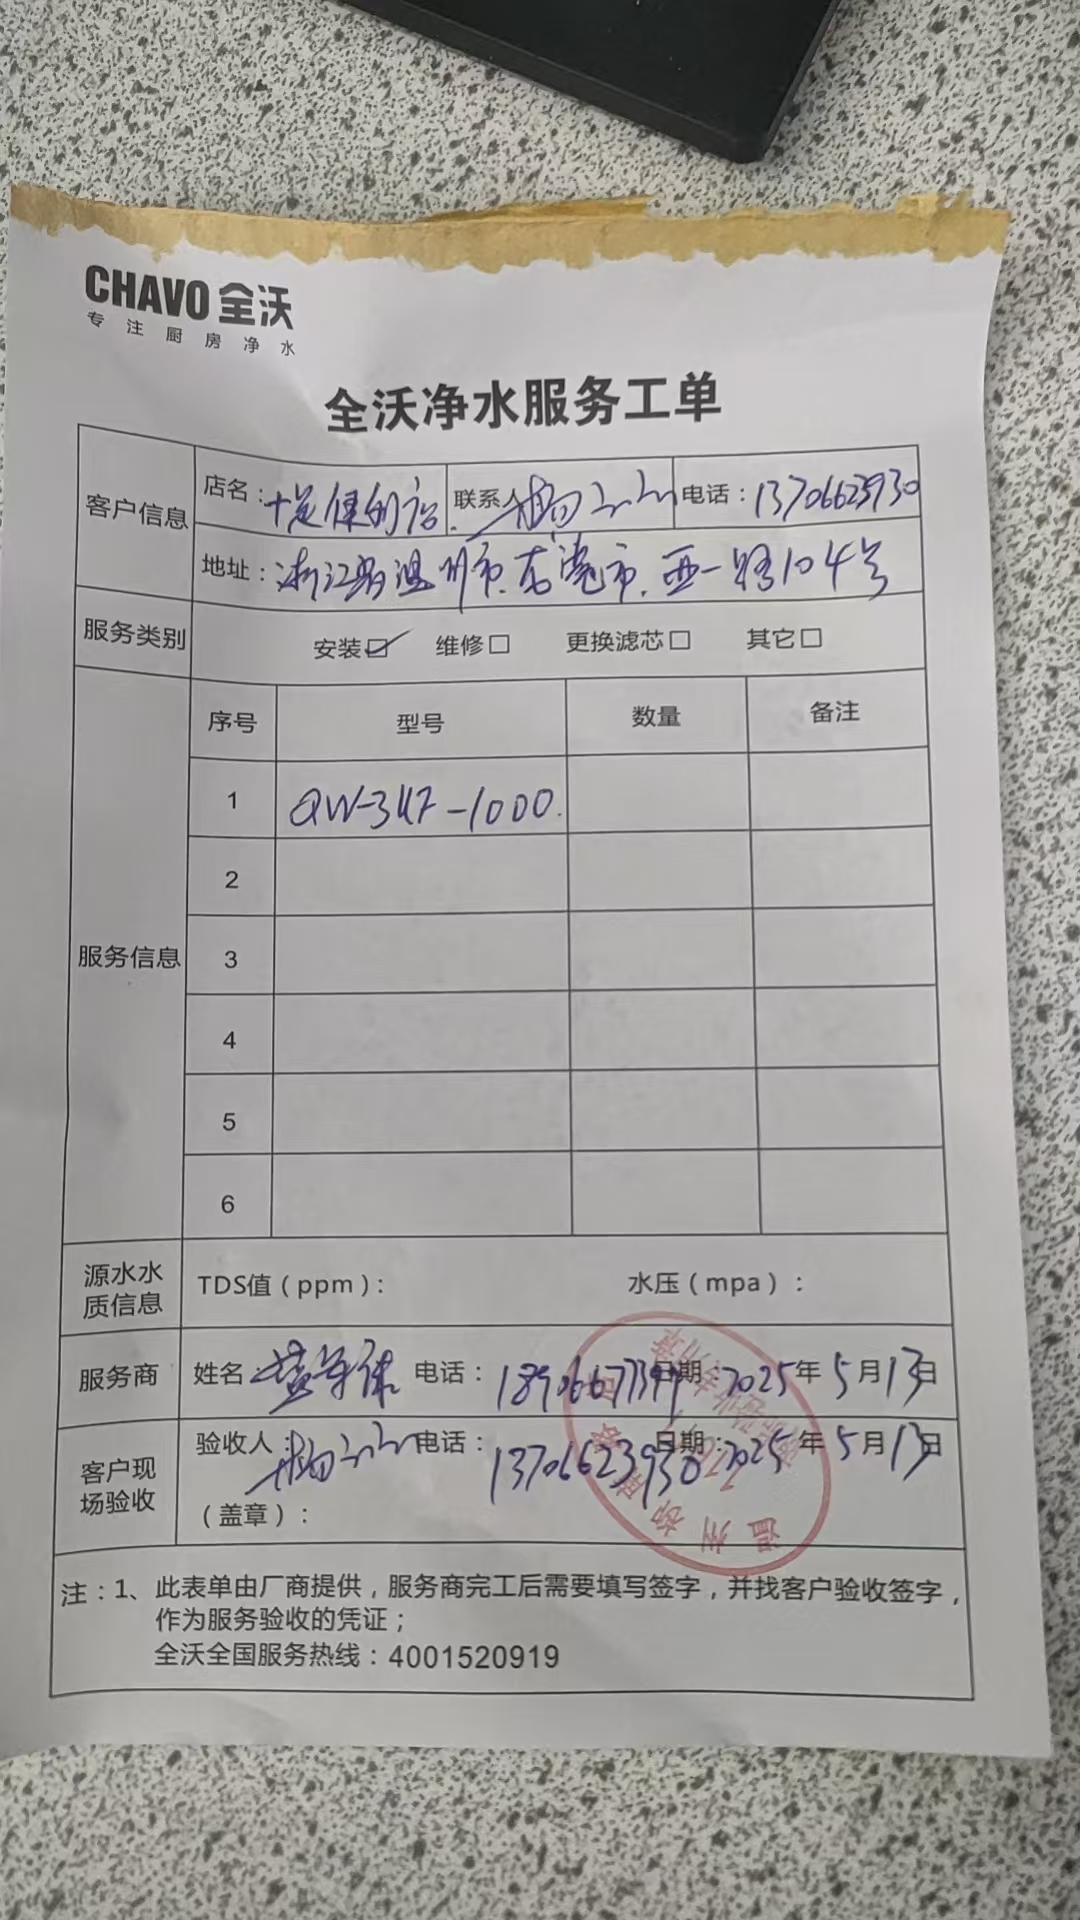 CHAVO 全沃
专注厨房净水
全沃净水服务工单
客户信息
店名：十足便利店
联系人
电话：13706623930
地址：浙江省温州市.东莞市.西一路104号
服务类别
安装☑ 维修□ 更换滤芯□ 其它□
服务信息
序号 型号 数量 备注
1
2
3
4
5
6
源水水质信息
TDS值（ppm）： 水压（mpa）：
服务商
姓名 电话： 日期：2025年5月13日
客户现场验收
验收人 电话：13706623930 日期：2025年5月13日
（盖章）：
温州
注：1、此表单由厂商提供，服务商完工后需要填写签字，并找客户验收签字，
作为服务验收的凭证；
全沃全国服务热线：4001520919